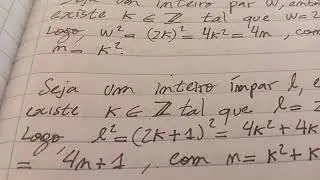 Seja um inteiro par w, então
existe k ∈ ℤ tal que w=2
Logo, w² = (2k)² = 4k² = 4m, com
m = k².
Seja um inteiro ímpar l, e
existe k ∈ ℤ tal que l = 2
Logo, l² = (2k+1)² = 4k² + 4k
= 4m+1, com m = k² + k